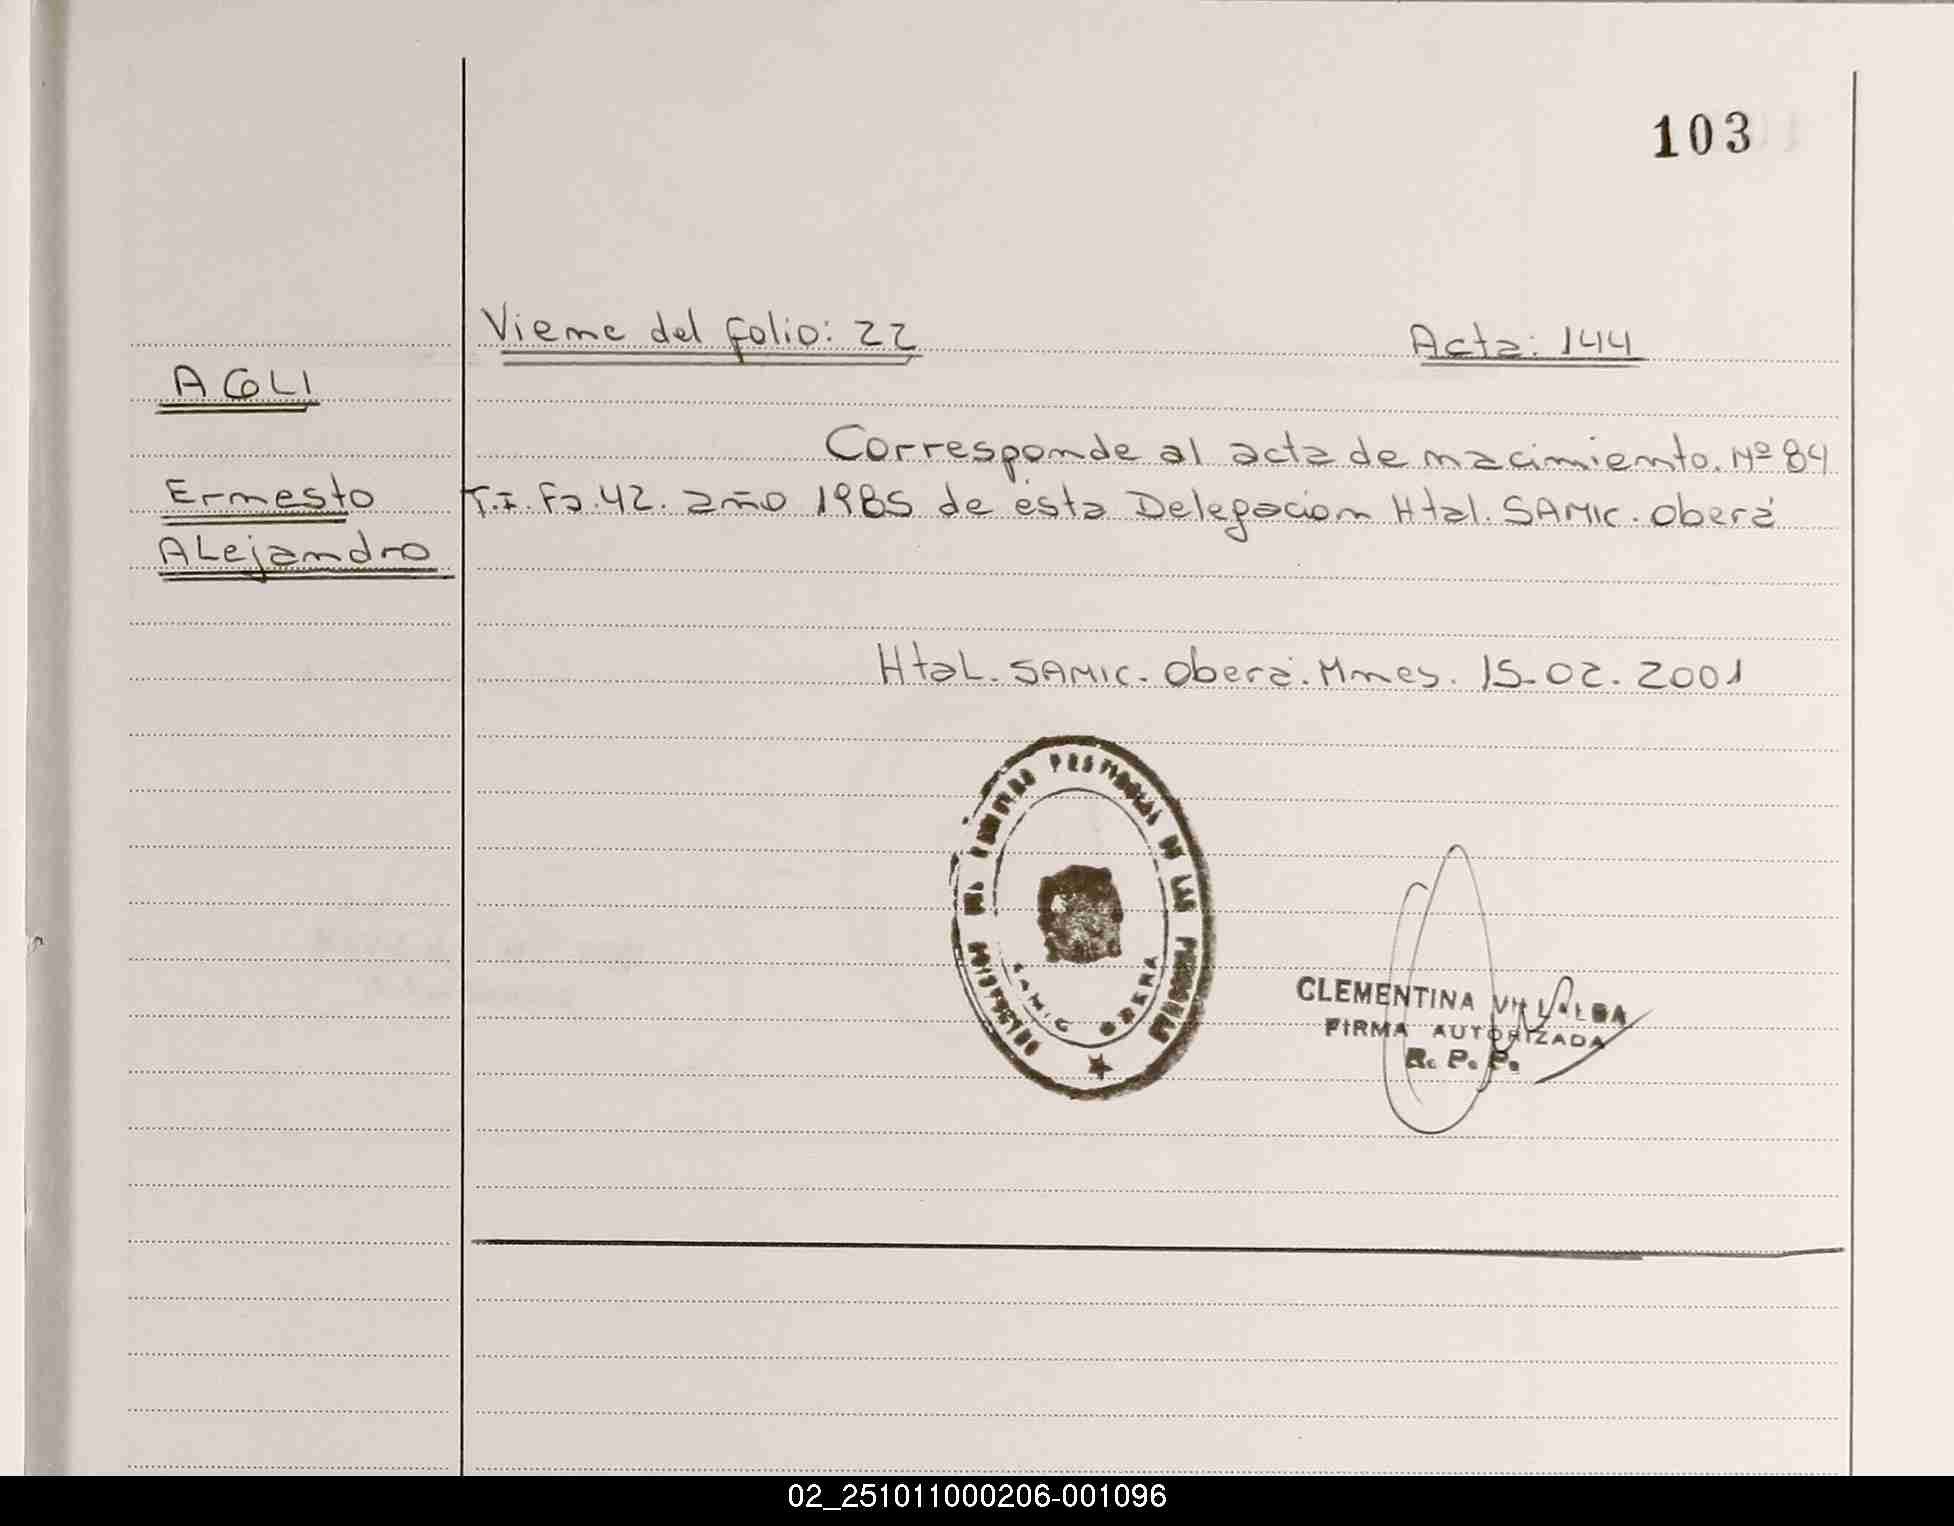 103
Viene del folio: 22 Acta: 144
AGLI
Ernesto
ALejandro
Corresponde al acta de nacimiento. Nº 84
T.I. Fo. 42. año 1985 de ésta Delegación Htal. SAMIC. Oberá
HtaL. SAMIC. Oberá. Mnes. 15-02. 2001
DELEGACION DEL REGISTRO PROVINCIAL DE LAS PERSONAS
SAMIC OBERA
CLEMENTINA VILLALBA
FIRMA AUTORIZADA
R. P. P.
02_251011000206-001096